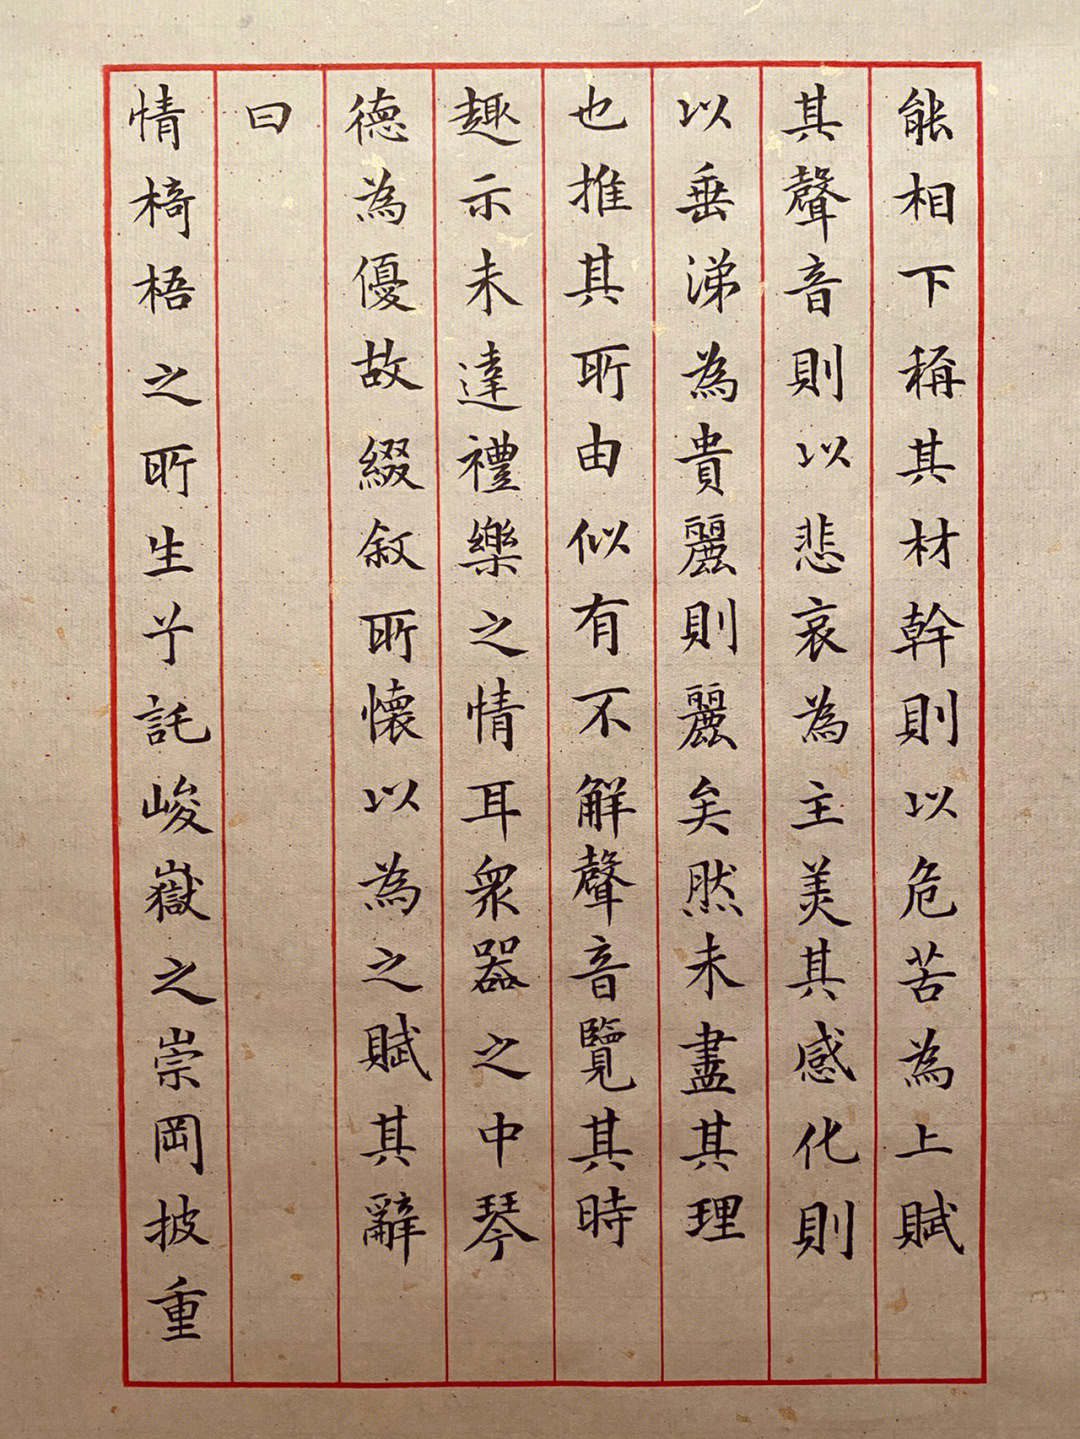 能相下稱其材幹則以危苦為上賦
其聲音則以悲哀為主美其感化則
以垂涕為貴麗則麗矣然未盡其理
也推其所由似有不解聲音覽其時
趣示未達禮樂之情耳衆器之中琴
德為優故綴叙所懷以為之賦其辭
曰
情椅梧之所生兮託峻嶽之崇岡披重